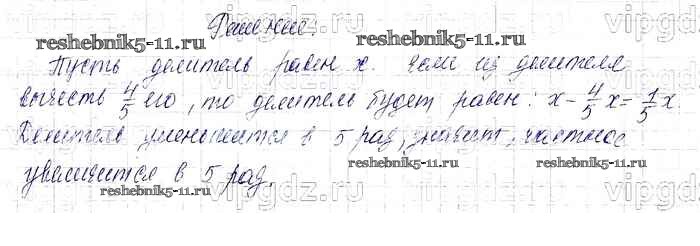 Решение.
Пусть делитель равен x. Если из делителя
вычесть 4/5 его, то делитель будет равен: x - 4/5 x = 1/5 x.
Делитель уменьшится в 5 раз, значит, частное
увеличится в 5 раз.
reshebnik5-11.ru
reshebnik5-11.ru
reshebnik5-11.ru
reshebnik5-11.ru
reshebnik5-11.ru
vipgdz.ru